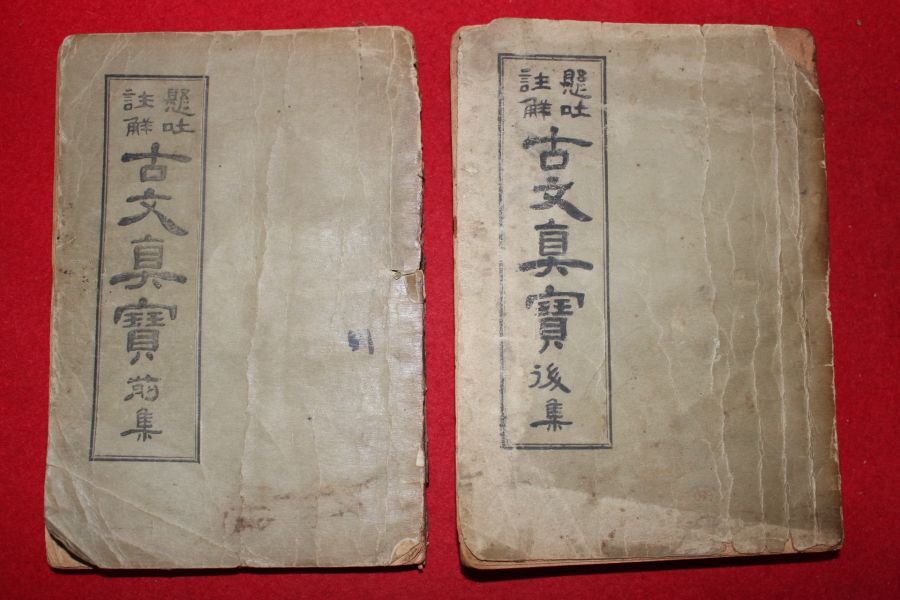 懸吐
註解
古文眞寶 前集
懸吐
註解
古文眞寶 後集